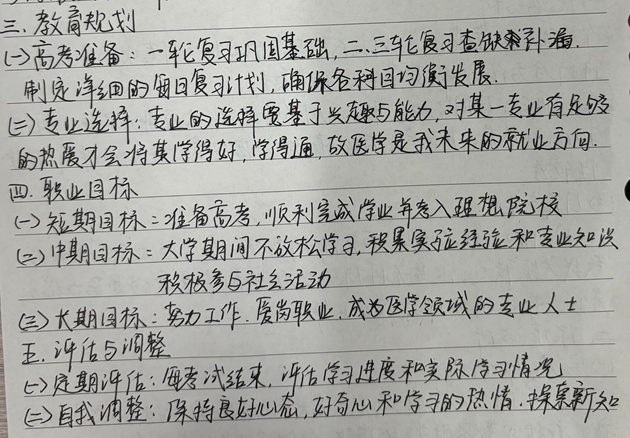 三.教育规划
(一)高考准备：一轮复习巩固基础,二、三轮复习查缺补漏.
制定详细的每日复习计划,确保各科目均衡发展.
(二)专业选择：专业的选择要基于兴趣与能力,对某一专业有足够
的热爱才会将其学得好,学得通,故医学是我未来的就业方向.
四.职业目标
(一)短期目标：准备高考,顺利完成学业并考入理想院校
(二)中期目标：大学期间不放松学习,积累实验经验和专业知识
积极参与社会活动
(三)长期目标：努力工作.爱岗职业.成为医学领域的专业人士
五.评估与调整
(一)定期评估：每考试结束,评估学习进度和实际学习情况
(二)自我调整：保持良好心态,好奇心和学习的热情.探索新知